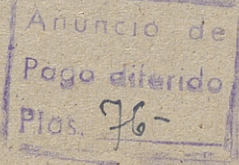 Anuncio de
Pago diferido
Ptas. 76-